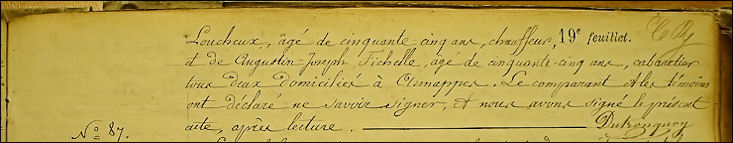 Loucheux, âgé de cinquante-cinq ans, chauffeur, 19e feuillet.
et de Augustin-Joseph Tichelle, âgé de cinquante-cinq ans, cabaretier
tous deux domiciliés à Osmappes. Le comparant et les témoins
ont déclaré ne savoir signer, et nous avons signé le présent
acte, après lecture. Dutronquoy
No 87.